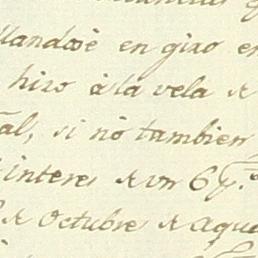 llandose en giro en
hizo à la vela de
al, si nó tambien
interes de un 6 p.
de Octubre de aque